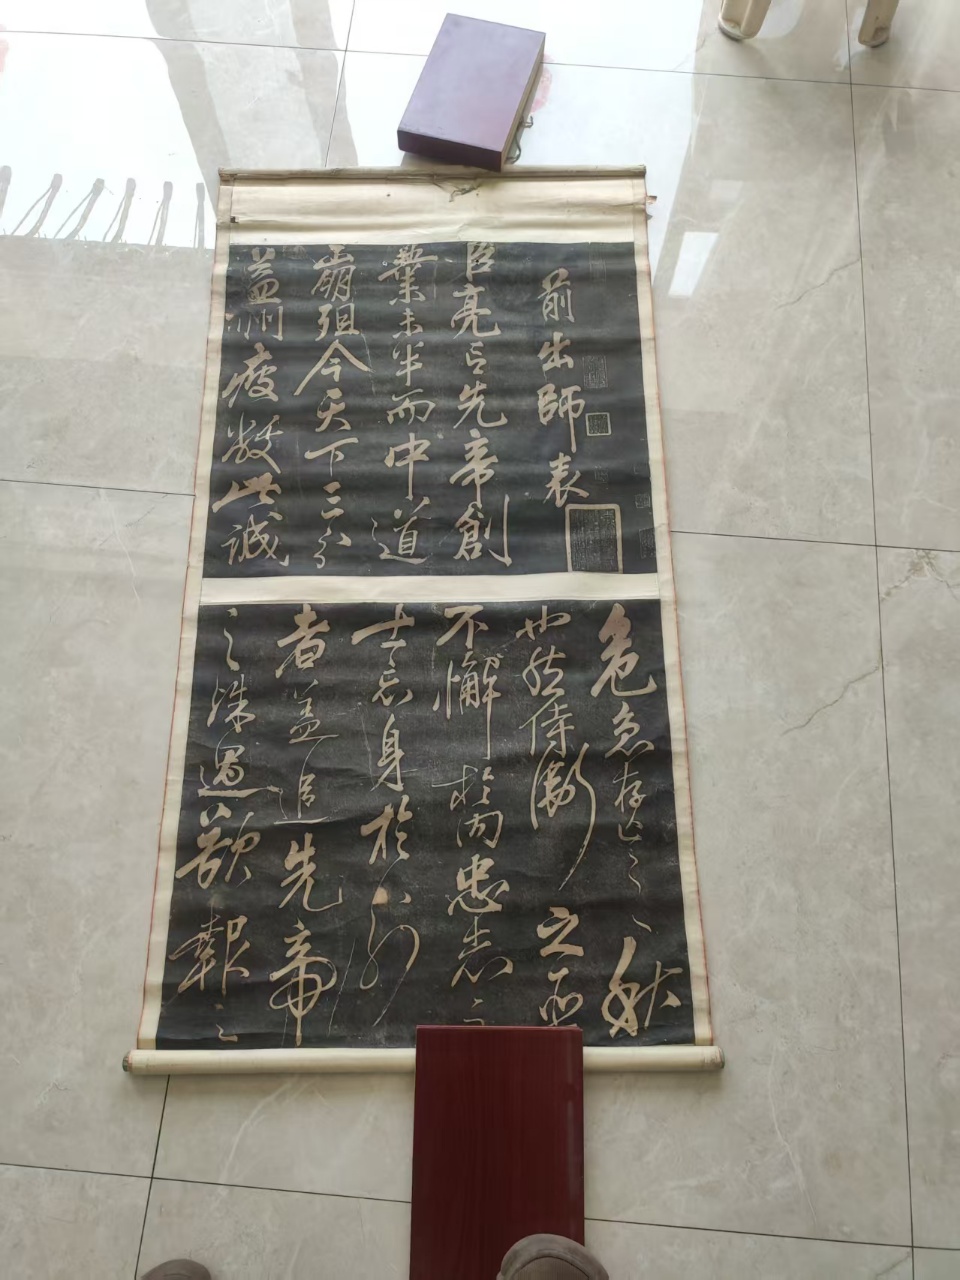 前出師表
臣亮言先帝創
業未半而中道
崩殂今天下三分
益州疲敝此誠
危急存亡之秋
也然侍衛之臣
不懈於内忠志之
士忘身於外
者盖追先帝
之殊遇欲報之